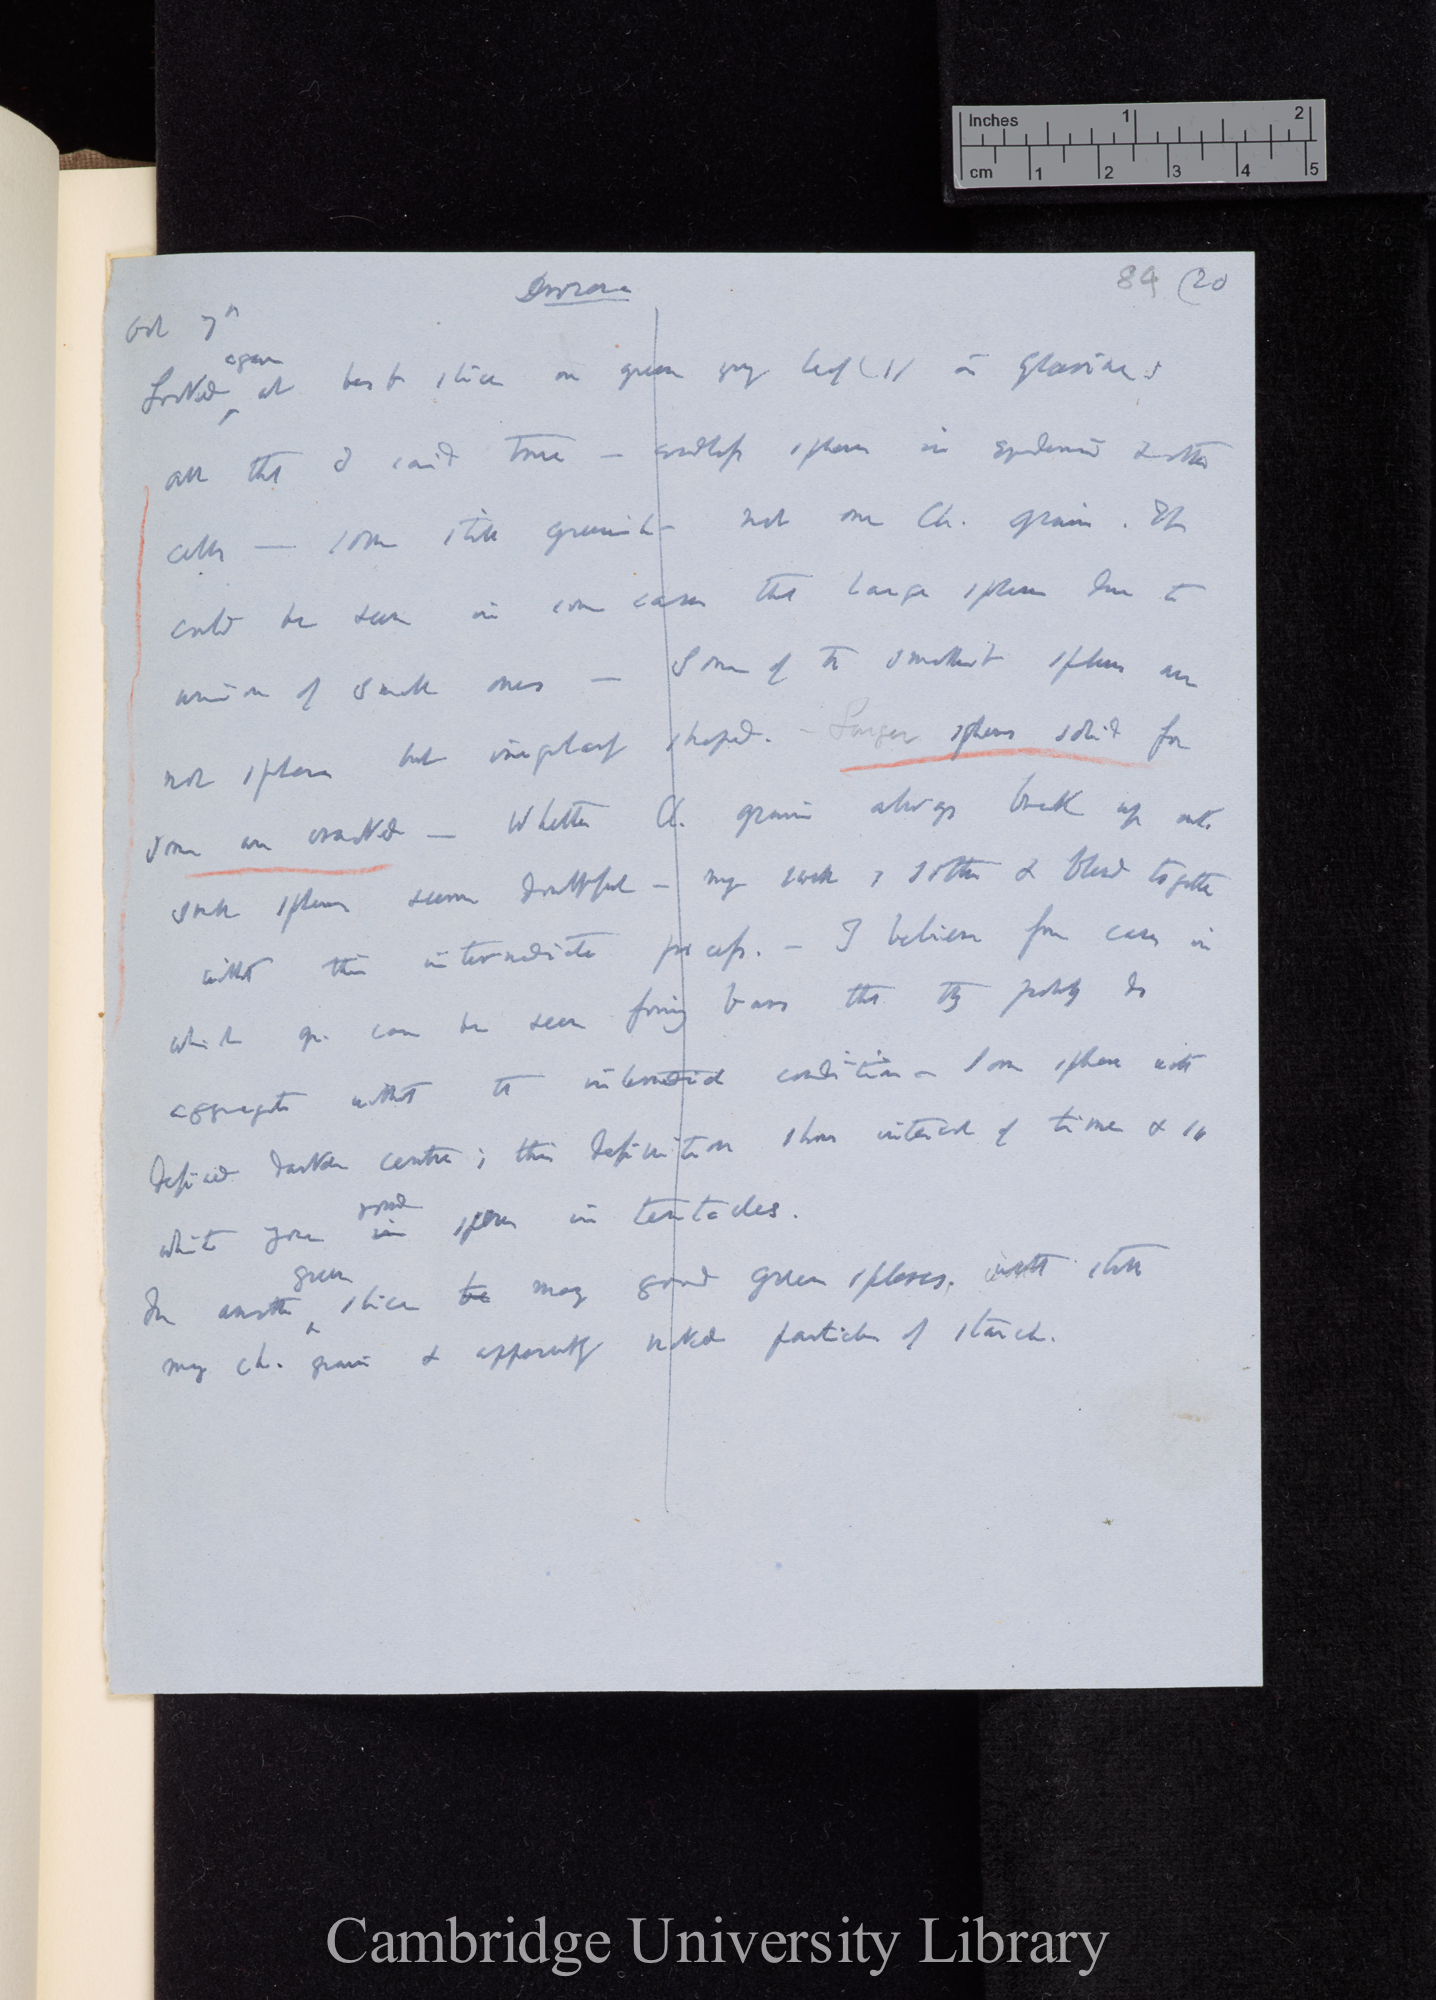 Inches 1 2
cm 1 2 3 4 5
Drosera
84 (20
Oct 7th
again
Looked at best slice on green young leaf (1) in Glycerine;
all that I said true — endless spheres in epidermis & other
cells — some still greenish — not one Ch. grain. It
could be seen in some cases that large spheres due to
union of small ones — Some of the smallest spheres are
not spheres but irregularly shaped. — Larger spheres solid for
some are cracked — Whether Ch. grains always break up into
such spheres seems doubtful — may swell, soften & blend together
without this intermediate process. — I believe from cases in
which gr. can be seen forming bars that they probably do
aggregate without the condition — Some spheres with
defined darker centre; this definition shows interval of time & is
while in spheres in tentacles.
green
In another slice many good green spheres, with still
many ch. grains & apparently naked particles of starch.
Cambridge University Library